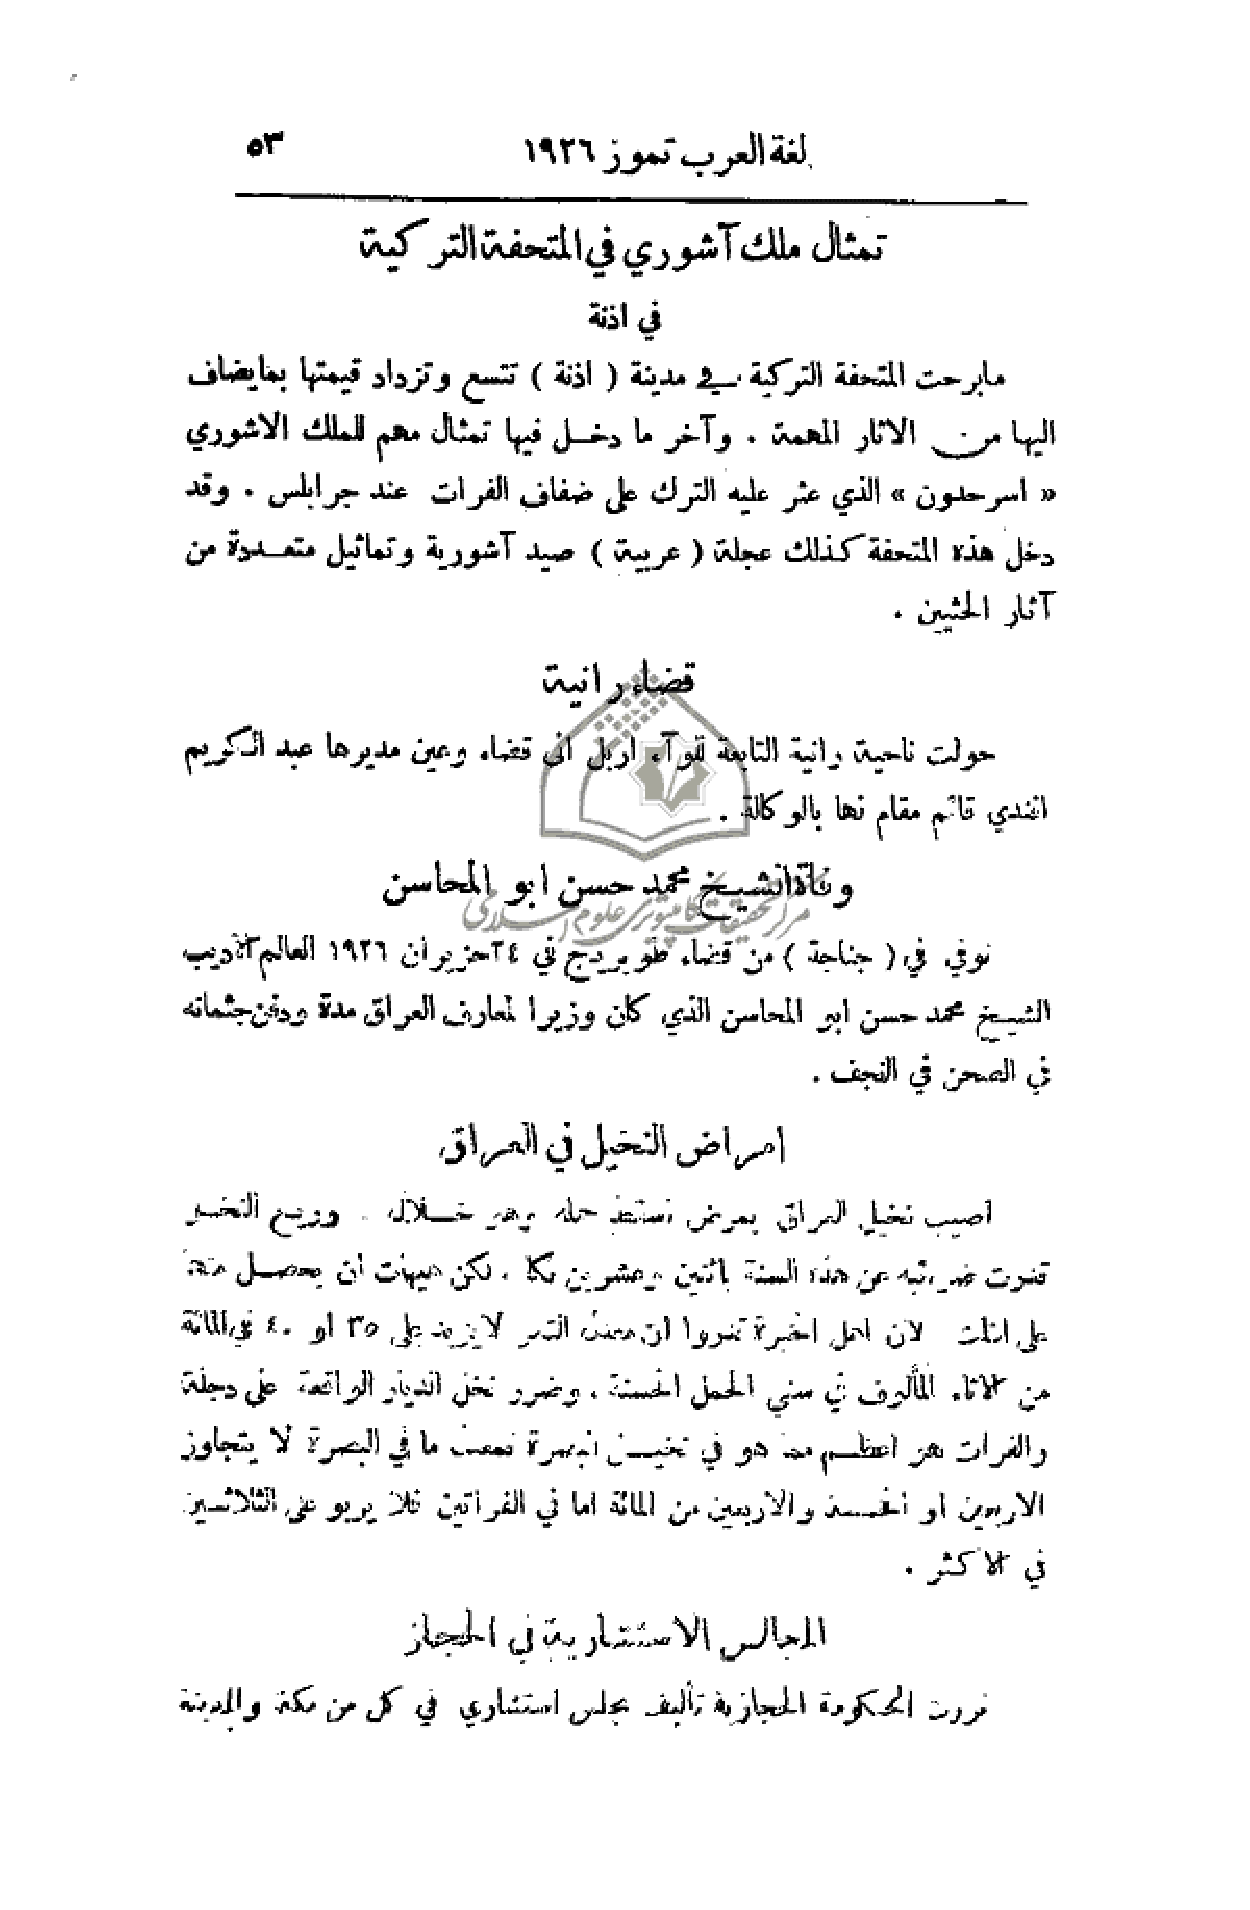 لغة العرب تموز ١٩٢٦ ٥٣
تمثال ملك آشوري في المتحفة التركية
في اذنة
مابرحت المتحفة التركية في مدينة ( اذنة ) تتسع وتزداد قيمتها بمايضاف
اليها من الاثار المهمة . وآخر ما دخل فيها تمثال مهم للملك الاشوري
« اسرحدون » الذي عثر عليه الترك على ضفاف الفرات عند جرابلس . وقد
دخل هذه المتحفة كذلك عجلة ( عربية ) صيد آشورية وتماثيل متعددة من
آثار الحثيين .
قضاء رانية
حولت ناحية رانية التابعة للوآء اربل الى قضاء وعين مديرها عبد الكريم
افندي قائم مقام لها بالوكالة .
وفاة الشيخ محمد حسن ابو المحاسن
توفي في ( جناجة ) من قضاء طويريج في ٢٤حزيران ١٩٢٦ العالم الاديب
الشيخ محمد حسن ابو المحاسن الذي كان وزيرا لمعارف العراق مدة ودفن جثمانه
في الصحن في النجف .
امراض النخيل في العراق
اصيب نخيل العراق بمرض حمله وهو خلال .
قدرت ضريبته عن هذه السنة باثنين وعشرين لكا . لكن هيهات ان يحصل
على لان اهل الخبرة قدروا ان معدل التمر لا يزيد على ٣٥ او ٤٠ في المائة
من الاتاء المألوف في سني الحمل الحسنة . وضرر نخل الديار الواقعة على دجلة
والفرات هو اعظم مما هو في نخيل البصرة فضعف ما في البصرة لا يتجاوز
الاربعين او الخمسة والاربعين من المائة اما في الفراتين فلا يربو على الثلاثين
في الاكثر .
المجالس الاستشارية في الحجاز
قررت الحكومة الحجازية تأليف مجلس استشاري في كل من مكة والمدينة
مركز تحقيقات كامپيوتري علوم اسلامي